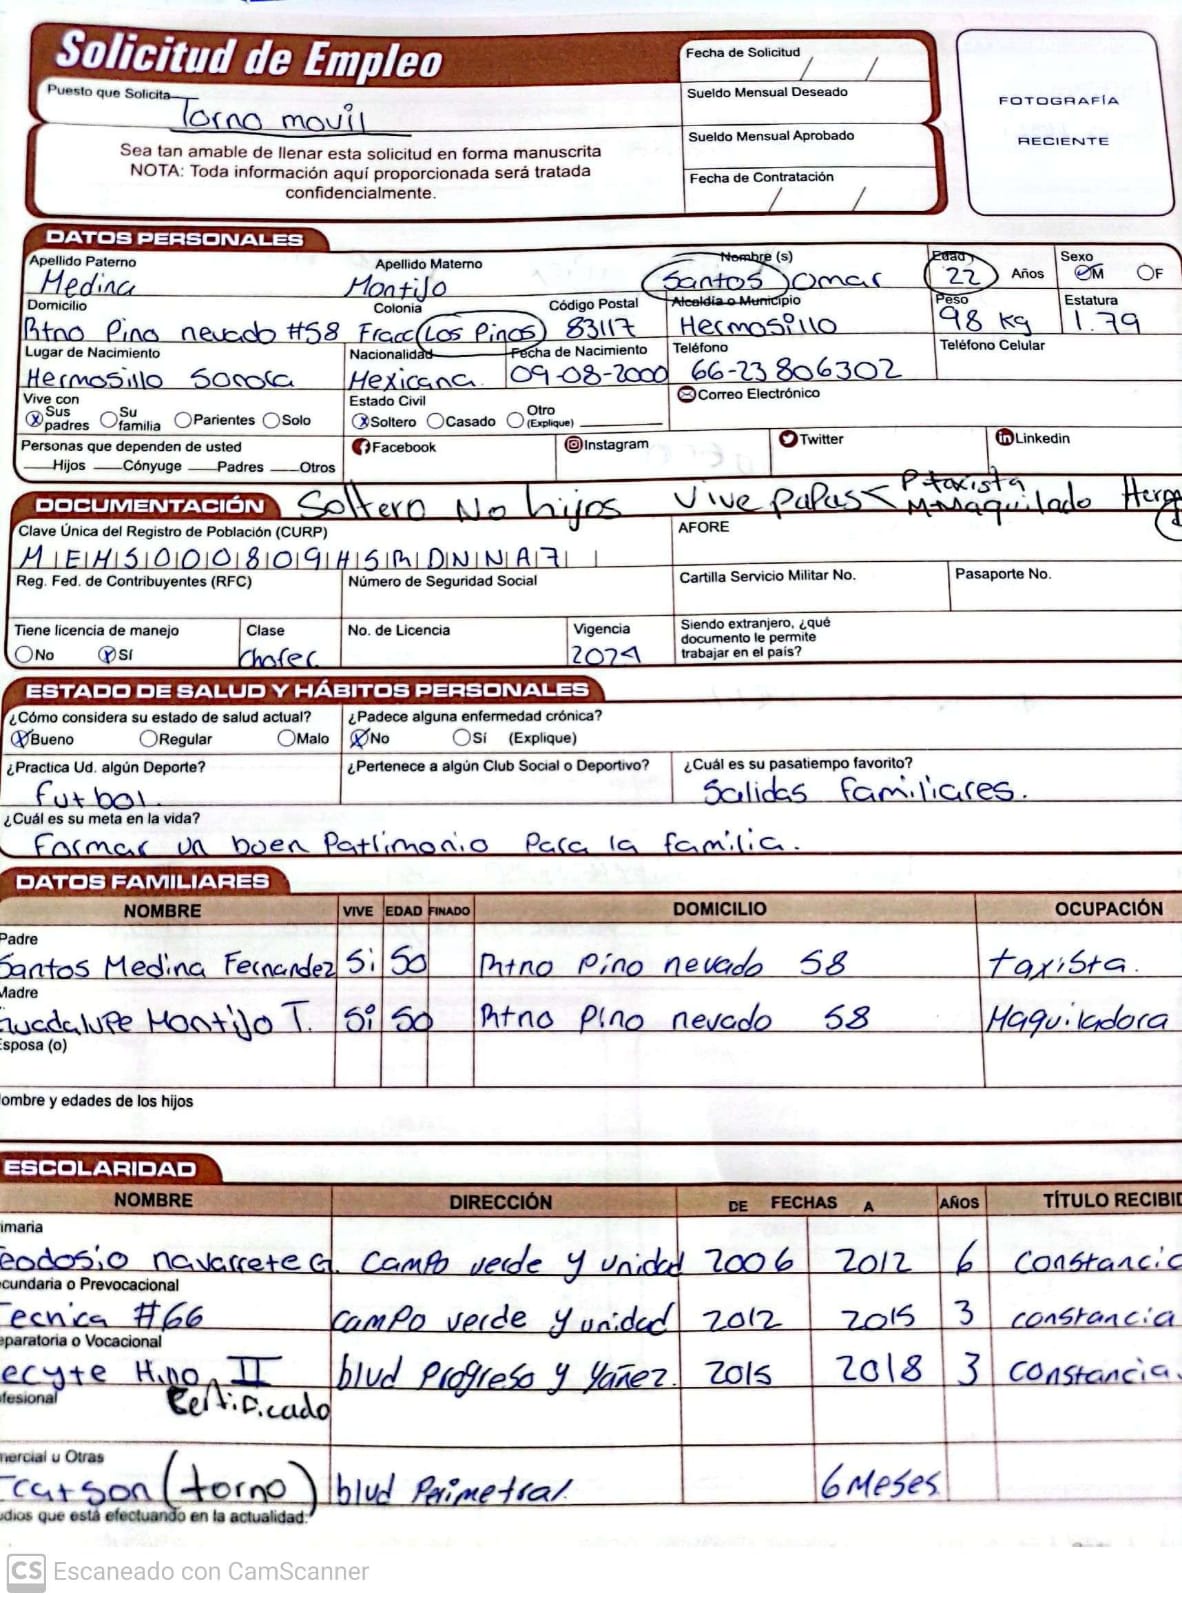 Solicitud de Empleo
Fecha de Solicitud / /
Puesto que Solicita Torno movil
Sueldo Mensual Deseado
FOTOGRAFÍA
RECIENTE
Sueldo Mensual Aprobado
Sea tan amable de llenar esta solicitud en forma manuscrita
NOTA: Toda información aquí proporcionada será tratada
confidencialmente.
Fecha de Contratación / /
DATOS PERSONALES
Apellido Paterno Apellido Materno Nombre (s) Edad Sexo
Medina Montijo Santos Omar 22 Años M F
Domicilio Colonia Código Postal Alcaldía o Municipio Peso Estatura
Rtno Pino nevado #58 Fracc Los Pinos 83117 Hermosillo 98 Kg 1.79
Lugar de Nacimiento Nacionalidad Fecha de Nacimiento Teléfono Teléfono Celular
Hermosillo Sonora Mexicana 09-08-2000 66-23806302
Vive con Estado Civil Correo Electrónico
Sus padres Su familia Parientes Solo Soltero Casado Otro (Explique)
Personas que dependen de usted Facebook Instagram Twitter Linkedin
Hijos Cónyuge Padres Otros
DOCUMENTACIÓN Soltero No hijos Vive papas < P-taxista
M-Maquilado
Clave Única del Registro de Población (CURP) AFORE
MEHS000809HSRDNNA7
Reg. Fed. de Contribuyentes (RFC) Número de Seguridad Social Cartilla Servicio Militar No. Pasaporte No.
Tiene licencia de manejo Clase No. de Licencia Vigencia Siendo extranjero, ¿qué
documento le permite
trabajar en el país?
No Sí Chofer 2024
ESTADO DE SALUD Y HÁBITOS PERSONALES
¿Cómo considera su estado de salud actual? ¿Padece alguna enfermedad crónica?
Bueno Regular Malo No Sí (Explique)
¿Practica Ud. algún Deporte? ¿Pertenece a algún Club Social o Deportivo? ¿Cuál es su pasatiempo favorito?
futbol. Salidas familiares.
¿Cuál es su meta en la vida?
Formar un buen Patrimonio Para la familia.
DATOS FAMILIARES
NOMBRE VIVE EDAD FINADO DOMICILIO OCUPACIÓN
Padre
Santos Medina Fernandez Si 50 Rtno Pino nevado 58 taxista.
Madre
Guadalupe Montijo T. Si 50 Rtno Pino nevado 58 Maquiladora
Esposa (o)
ombre y edades de los hijos
ESCOLARIDAD
NOMBRE DIRECCIÓN DE FECHAS A AÑOS TÍTULO RECIBID
imaria
eodosio navarrete G. Campo verde y unidad 2006 2012 6 constancia
cundaria o Prevocacional
Tecnica #66 campo verde y unidad 2012 2015 3 constancia
eparatoria o Vocacional
ecyte H.no II blvd Progreso y Yañez. 2015 2018 3 constancia.
fesional Certificado
mercial u Otras
Icatson (torno) blvd Perimetral. 6 Meses
udios que está efectuando en la actualidad:
CS Escaneado con CamScanner